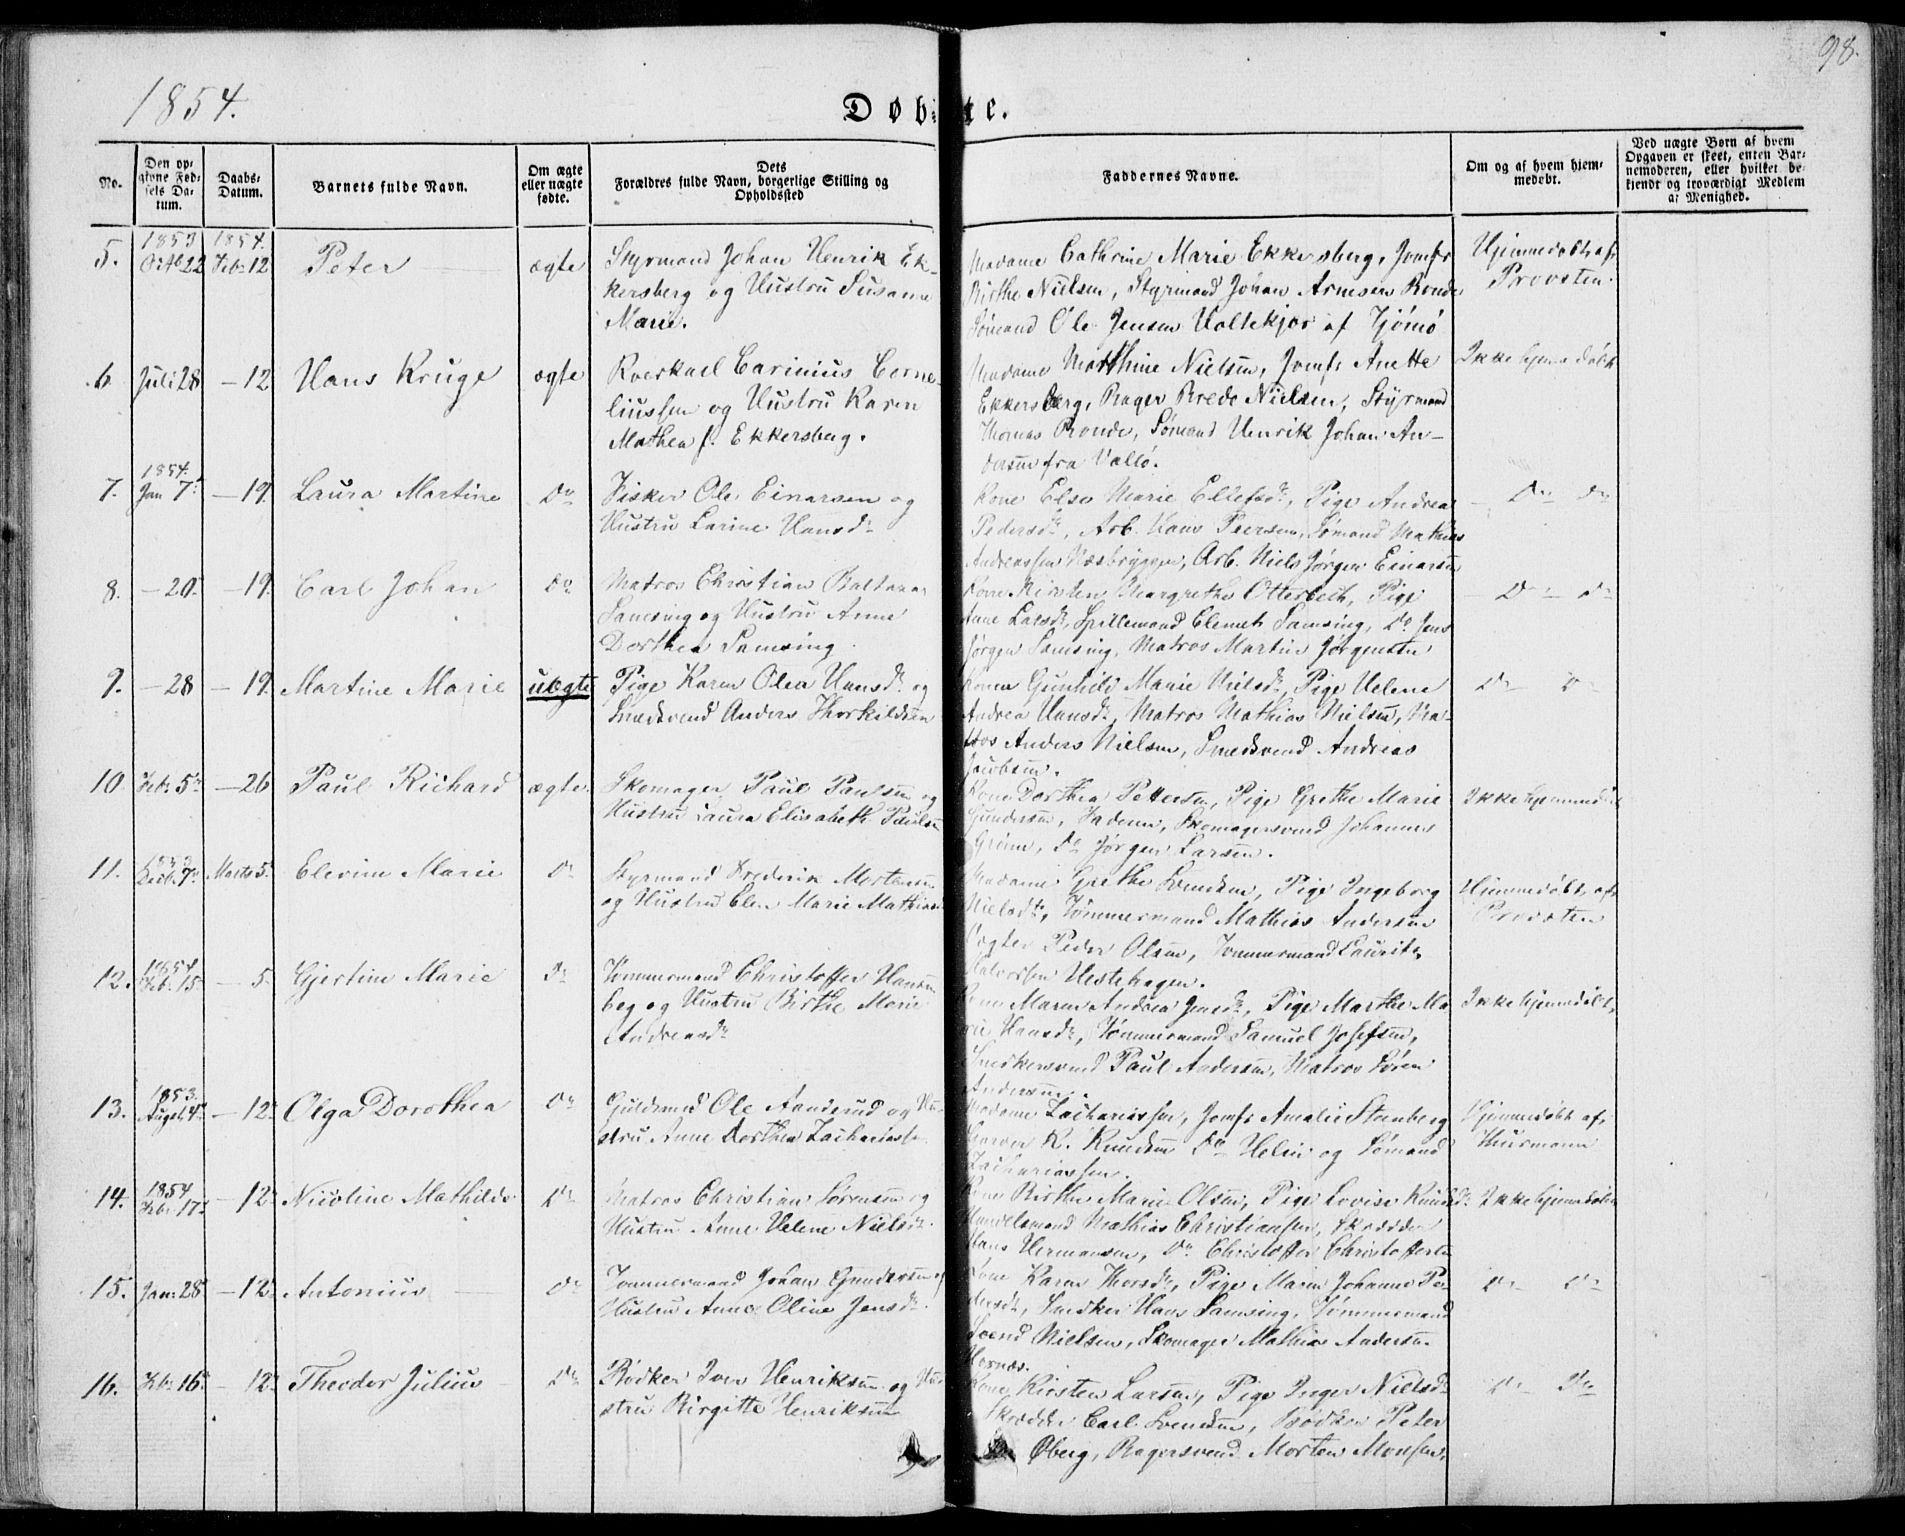 98.
1854.
Døbte.
No.
Den op-
givne Fød-
sels Da-
tum.
Daabs-
Datum.
Barnets fulde Navn.
Om ægte
eller uægte
fødte.
Dets
Forældres fulde Navn, borgerlige Stilling og
Opholdssted
Faddernes Navne.
Om og af hvem hjem-
medøbt.
Ved uægte Børn af hvem
Opgaven er skeet, enten Bar-
nemoderen, eller hvilket be-
kjendt og troværdigt Medlem
af Menighed.
5.
1853
Octb 22
1854.
Feb. 12
Peter
ægte
Styrmand Johan Henrik Ek-
kersberg og Hustru Susanne
Marie.
Madame Cathrine Marie Ekkersberg, Jomfr
Birthe Nielsen, Styrmand Johan Arnesen Ronde
Sømand Ole Jensen Holtekjær af Tjömö
Hjemmedøbt af
Provsten.
6
Juli 28
- 12
Hans Kruge
ægte
Carinius Corne-
liussen og Hustru Karen
Mathea f. Ekkersberg.
Madame Mathine Nielsen, Jomfr Anette
Ekkersberg, Bager Brede Nielsen, Styrmand
Thomas Ronde, Sømand Henrik Johan An-
dersen fra Vallö.
Ikke hjemmedøbt
7.
1854.
Jan 7
- 19.
Laura Martine
Do
Fisker Ole Einarsen og
Hustru Larine Hansdr
Kone Else Marie Ellefsdr, Pige Andrea
Pedersdr, Arb. Hans Peersen, Sømand Mathias
Andreassen Næsbryggen, Arb. Niels Jørgen Einarsen
Do Do
8.
- 20.
- 19.
Carl Johan
Do
Matros Christian Baltazar
Samsing og Hustru Anne
Dorthea Samsing.
Kone Kirsten Margrethe Otterbech, Pige
Anne Larsdr, Spillemand Clemet Samsing, Do Jens
Jørgen Samsing, Matros Martin Jørgensen
Do Do
9.
- 28
- 19.
Martine Marie
uægte
Pige Karen Olea Hansdr og
Smedsvend Anders Thorkildsen
Konen Gunhild Marie Nielsdr, Pige Helene
Andrea Hansdr, Matros Mathias Nielsen, Ma-
tros Anders Nielsen, Smedsvend Andreas
Jacobsen.
Do Do
10
Feb. 5
- 26
Paul Richard
ægte
Skomager Paul Paulsen og
Hustru Laura Elisabeth Paulsen
Kone Dorthea Pettersen, Pige Grethe Marie
Gundersen, Faderen, Skomagersvend Johannes
Grönn, Do Jørgen Larsen.
Ikke hjemmedøbt
11.
1853
Decb. 7
Marts 5.
Elevine Marie
Do
Styrmand Frederik Mortensen
og Hustru Elen Marie Mathiasen
Madame Grethe Svendsen, Pige Ingeborg
Nielsdr, Tømmermand Mathias Andersen
Peder Olsen, Tømmermand Laurits
Halvorsen Hestehagen.
Hjemmedøbt af
Provsten
12.
1854
Feb. 15
- 5.
Gjertine Marie
Do
Tømmermand Christoffer Hansen
og Hustru Birthe Marie
Andreasdr
Kone Maren Andrea Jensdr, Pige Marthe Ma-
rie Hansdr, Tømmermand Samuel Josefsen,
Snedkersvend Paul Andersen, Matros Sören
Andersen.
Ikke hjemmedøbt
13.
1853.
August 4
- 12
Olga Dorothea
Do
Guldsmed Ole Aanderud og Hu-
stru Anne Dorthea Zachariassen
Madame Zachariassen, Jomfr Amalie Steenberg
Garver R. Knudsen Do Helin og Sømand
Zachariassen.
Hjemmedøbt af
Thurmann
14.
1854
Feb. 17
- 12
Nicoline Mathilde
Do
Matros Christian Sørensen og
Hustru Anne Helene Nielsdr.
Kone Birthe Marie Olsen, Pige Lovise Knudsdr
Handelsmand Mathias Christiansen, Skrædder
Hans Hermansen, Do Christoffer Christoffersen
Ikke hjemmedøbt
15.
Jan. 28
- 12
Antonius
Do
Tømmermand Johan Gundersen og
Hustru Anne Oline Jensdr.
Kone Karen Thorsdr, Pige Maren Johanne Pe-
dersdr, Snedker Hans Samsing, Tømmermand
Svend Nielsen, Skomager Mathias Andersen
Hornæs.
Do Do
16.
Feb. 16
- 12
Theodor Julius
Do
Bødker Iver Henriksen og Hu-
stru Birgitte Henriksen
Kone Kirsten Larsen, Pige Inger Nielsdr
Skrædder Carl Svendsen, Bødker Peter
Øberg, Bagersvend Morten Monsen.
Do Do